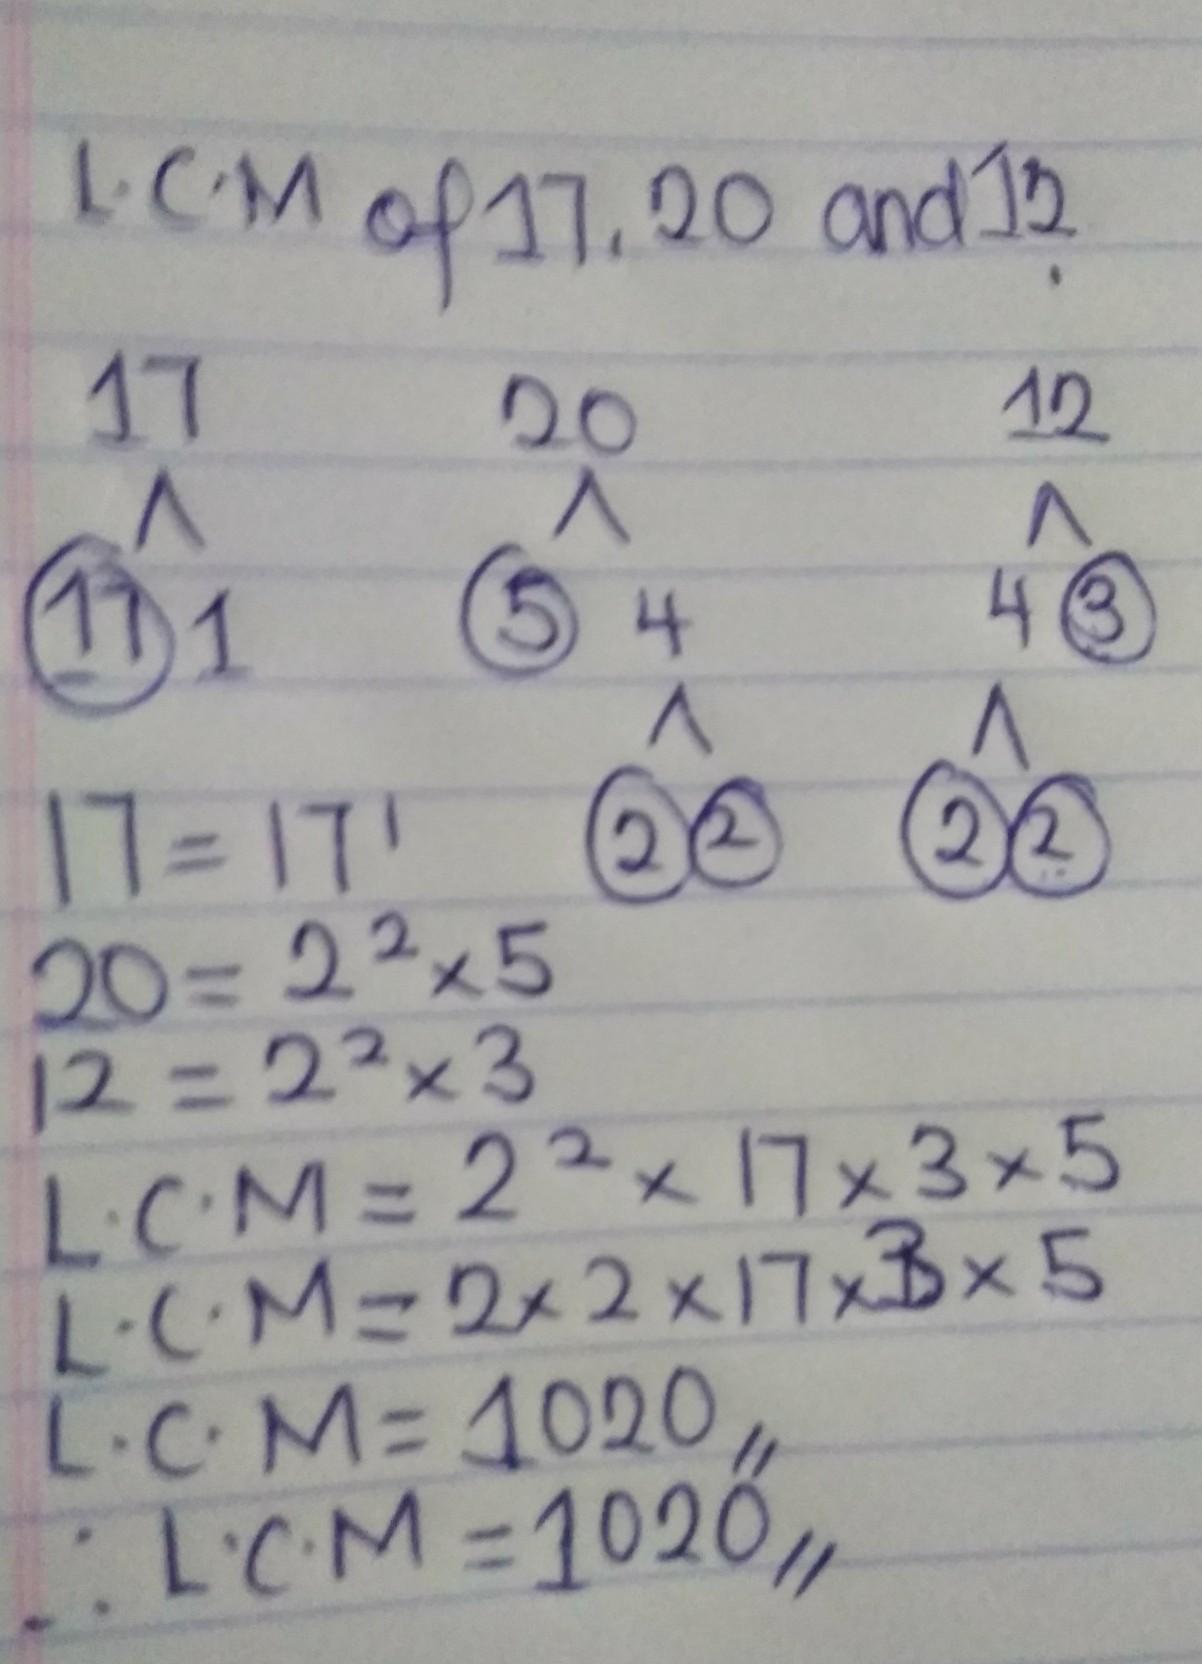 L.C.M of 17, 20 and 12.
17 20 12
17 1 5 4 4 3
2 2 2 2
17 = 17¹
20 = 2² × 5
12 = 2² × 3
L.C.M = 2² × 17 × 3 × 5
L.C.M = 2 × 2 × 17 × 3 × 5
L.C.M = 1020,,
∴ L.C.M = 1020,,